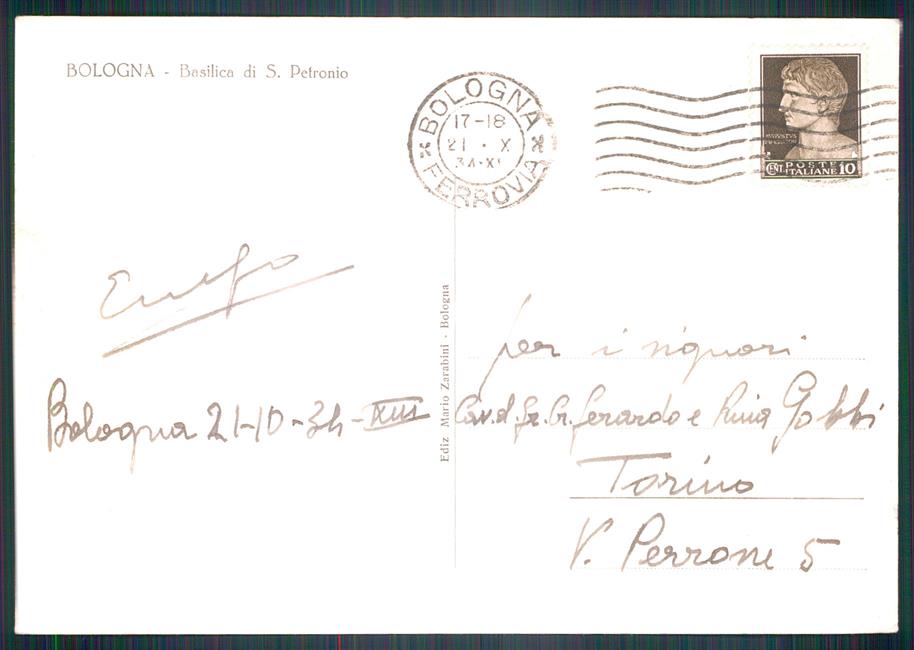 BOLOGNA - Basilica di S. Petronio
BOLOGNA
17-18
21 · X
34·XI
FERROVIA
AVGVSTVS
CENT POSTE ITALIANE 10
Bologna 21-10-34-XIII
Ediz Mario Zarabini - Bologna
per i signori
Cav.d. Gr. Cr. Gerardo e Gobbi
Torino
V. Perrone 5